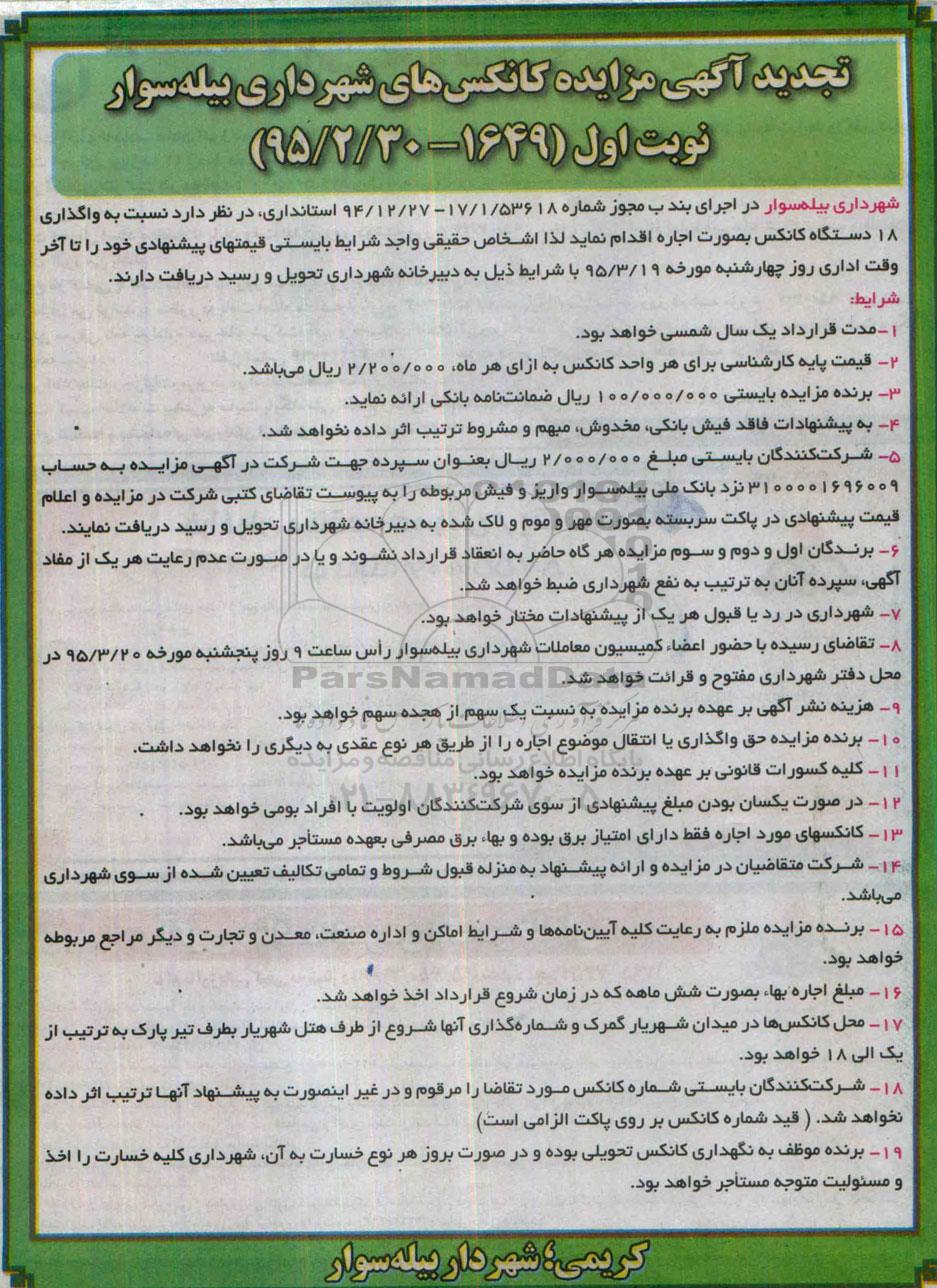 تجدید آگهی مزایده کانکس‌های شهرداری بیله‌سوار
نوبت اول (۱۶۴۹–۹۵/۲/۳۰)
شهرداری بیله‌سوار در اجرای بند ب مجوز شماره ۱۷/۱/۵۳۶۱۸-۹۴/۱۲/۲۷ استانداری، در نظر دارد نسبت به واگذاری
۱۸ دستگاه کانکس بصورت اجاره اقدام نماید لذا اشخاص حقیقی واجد شرایط بایستی قیمتهای پیشنهادی خود را تا آخر
وقت اداری روز چهارشنبه مورخه ۹۵/۳/۱۹ با شرایط ذیل به دبیرخانه شهرداری تحویل و رسید دریافت دارند.
شرایط:
۱-مدت قرارداد یک سال شمسی خواهد بود.
۲- قیمت پایه کارشناسی برای هر واحد کانکس به ازای هر ماه، ۲/۲۰۰/۰۰۰ ریال می‌باشد.
۳- برنده مزایده بایستی ۱۰۰/۰۰۰/۰۰۰ ریال ضمانت‌نامه بانکی ارائه نماید.
۴- به پیشنهادات فاقد فیش بانکی، مخدوش، مبهم و مشروط ترتیب اثر داده نخواهد شد.
۵- شرکت‌کنندگان بایستی مبلغ ۲/۰۰۰/۰۰۰ ریال بعنوان سپرده جهت شرکت در آگهی مزایده به حساب
۳۱۰۰۰۰۱۶۹۶۰۰۹ نزد بانک ملی بیله‌سوار واریز و فیش مربوطه را به پیوست تقاضای کتبی شرکت در مزایده و اعلام
قیمت پیشنهادی در پاکت سربسته بصورت مهر و موم و لاک شده به دبیرخانه شهرداری تحویل و رسید دریافت نمایند.
۶- برندگان اول و دوم و سوم مزایده هر گاه حاضر به انعقاد قرارداد نشوند و یا در صورت عدم رعایت هر یک از مفاد
آگهی، سپرده آنان به ترتیب به نفع شهرداری ضبط خواهد شد.
۷- شهرداری در رد یا قبول هر یک از پیشنهادات مختار خواهد بود.
۸- تقاضای رسیده با حضور اعضاء کمیسیون معاملات شهرداری بیله‌سوار رأس ساعت ۹ روز پنجشنبه مورخه ۹۵/۳/۲۰ در
محل دفتر شهرداری مفتوح و قرائت خواهد شد.
ParsNamadData
۹- هزینه نشر آگهی بر عهده برنده مزایده به نسبت یک سهم از هجده سهم خواهد بود.
۱۰- برنده مزایده حق واگذاری یا انتقال موضوع اجاره را از طریق هر نوع عقدی به دیگری را نخواهد داشت.
پایگاه اطلاع رسانی مناقصه و مزایده
۱۱- کلیه کسورات قانونی بر عهده برنده مزایده خواهد بود.
۱۲- در صورت یکسان بودن مبلغ پیشنهادی از سوی شرکت‌کنندگان اولویت با افراد بومی خواهد بود.
۱۳- کانکسهای مورد اجاره فقط دارای امتیاز برق بوده و بهاء برق مصرفی بعهده مستأجر می‌باشد.
۱۴- شرکت متقاضیان در مزایده و ارائه پیشنهاد به منزله قبول شروط و تمامی تکالیف تعیین شده از سوی شهرداری
می‌باشد.
۱۵- برنده مزایده ملزم به رعایت کلیه آیین‌نامه‌ها و شرایط اماکن و اداره صنعت، معدن و تجارت و دیگر مراجع مربوطه
خواهد بود.
۱۶- مبلغ اجاره بهاء بصورت شش ماهه که در زمان شروع قرارداد اخذ خواهد شد.
۱۷- محل کانکس‌ها در میدان شهریار گمرک و شماره‌گذاری آنها شروع از طرف هتل شهریار بطرف تیر پارک به ترتیب از
یک الی ۱۸ خواهد بود.
۱۸- شرکت‌کنندگان بایستی شماره کانکس مورد تقاضا را مرقوم و در غیر اینصورت به پیشنهاد آنها ترتیب اثر داده
نخواهد شد. ( قید شماره کانکس بر روی پاکت الزامی است)
۱۹- برنده موظف به نگهداری کانکس تحویلی بوده و در صورت بروز هر نوع خسارت به آن، شهرداری کلیه خسارت را اخذ
و مسئولیت متوجه مستأجر خواهد بود.
کریمی؛ شهردار بیله‌سوار